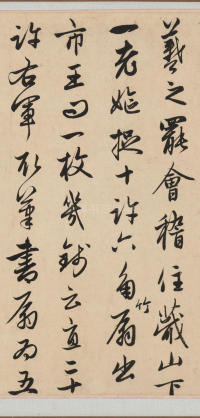 羲之罷會稽住蕺山下
一老嫗捉十許六角竹扇出
市王曰一枚幾錢云直二十
許右軍取筆書扇為五